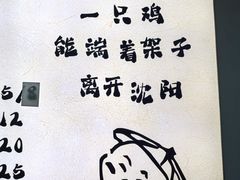 一只鸡
能端着架子
离开沈阳
58
12
20
25